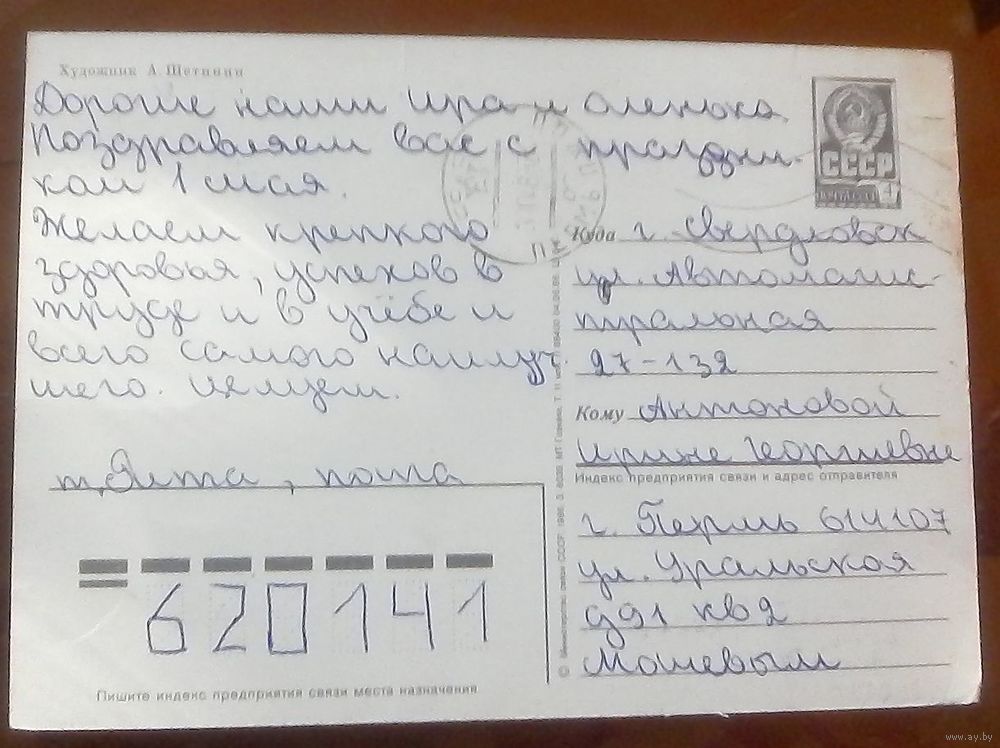 Художник А. Щетинин
Дорогие наши Ира и Оленька.
Поздравляем вас с праздни-
ком 1 мая.
Желаем крепкого
здоровья, успехов в
труде и в учёбе и
всего самого наилуч-
шего. Целуем.
т. Вита,
СССР
Куда г. Свердловск
ул. Автомагис-
тральная
27-132
Кому Антоновой
Ирине Георгиевне
Индекс предприятия связи и адрес отправителя
г. Пермь 614107
ул. Уральская
д91 кв2
620141
Пишите индекс предприятия связи места назначения
© Министерство связи СССР. 1986.
www.ay.by